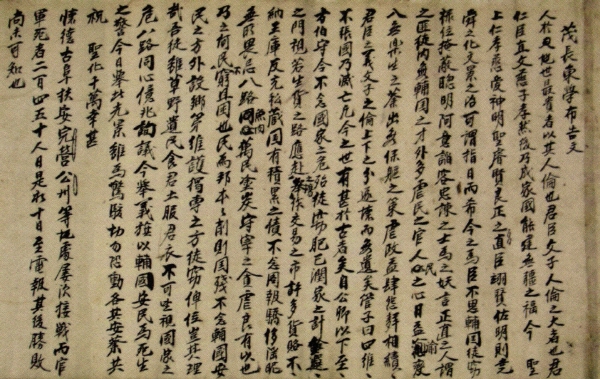 茂長東學布告文
人於世最貴者以其人倫也君臣父子人倫之大者也君
仁臣直父慈子孝然後乃成家國能逮無疆之福今 聖
上仁孝慈愛神明聖睿賢良正直之臣翊贊佐明則堯
舜之化文景之治可謂指日而希今之爲臣不思輔國徒窃
祿位掩蔽聰明阿意諂容忠陳之士爲之妖言正直之人謂
之匪徒內無輔國之才外多虐民之官人民之心日益渝變
入無樂生之業出無保軀之策虐政益肆怨聲相續
君臣之義父子之倫上下之分遂壞而無遺矣管子曰四維
不張國乃滅亡凡今之世有甚於古者矣自公卿以下至
方伯守令不念國家之危殆徒窃肥己潤家之計銓選
之門視若生貨之路應赴之場擧作交易之市許多貨賂不
納王庫反充私藏國有積累之債不念圖報驕侈淫佚
無所畏忌八路魚肉萬民塗炭守宰之貪虐良有以也
乃之何民窮且困也民爲邦本本削則國殘不念輔國安
民之方外設鄕第維設獨全之方徒窃俸位豈其理
哉吾徒雖草野遺民食君土服君衣不可坐視國家之
危八路同心億兆詢議今擧義旗以輔國安民爲死生
之誓今日擧光景雖爲驚駭切勿恐動各安業共
祝 聖化千萬幸甚
德古阜扶安完營公州等地處屢次接戰而官
軍死者二百四五十人日是如十日至電報其後勝敗
尚未可知也